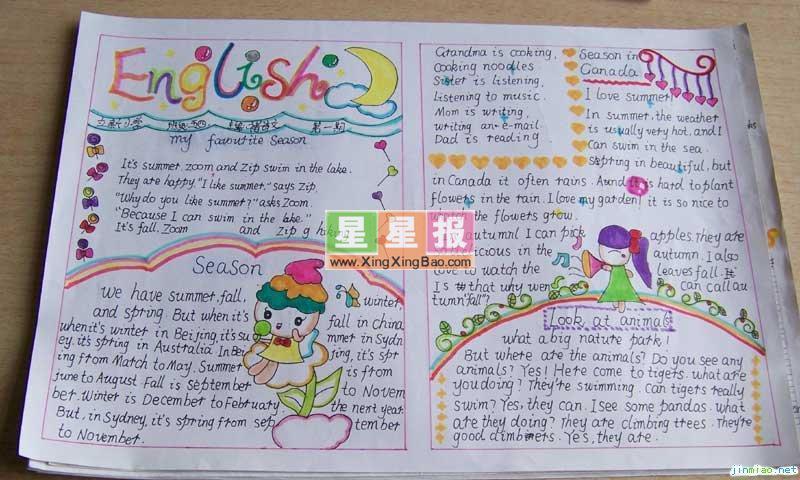 English
第一期
my favourite season
It's summer. zoom and Zip swim in the lake.
They are happy. "I like summer," says Zip.
"Why do you like summer?" asks Zoom.
"Because I can swim in the lake."
It's fall. Zoom and Zip g hik
Season
We have summer, fall, winter,
and spring. But when it's fall in china
when it's winter in Beijing, it's su mmer in Sydn
ey. it's spring in Australia. In Bei jing, it's spr
ing from March to May. Summer is from
June to August. Fall is September to Novem
ber. Winter is December to February the next year.
But, in Sydney, it's spring from sep tember
to November.
Grandma is cooking,
Cooking noodles
Sister is listening,
Listening to music.
Mom is writing,
writing an e-mail.
Dad is reading.
Season in
Canada
I love summer!
In summer, the weather
is usually very hot, and I
can swim in the sea.
Spring in beautiful, but
in Canada it often rains. is hard to plant
flowers in the rain. I love my garden! it is so nice to
the flowers grow.
autumn! I can pick apples. They are
licious in the autumn. I also
love to watch the leaves fall. It
Is that why we can call au
tumn "fall"?
Look at animals
what a big nature park!
But where are the animals? Do you see any
animals? Yes! Here come to tigers. what are
you doing? They're swimming. Can tigers really
swim? Yes, they can. I see some pandas. what
are they doing? They are climbing trees. They're
good climbners. Yes, they are.
星星报
www.XingXingBao.com
jinmiao.net